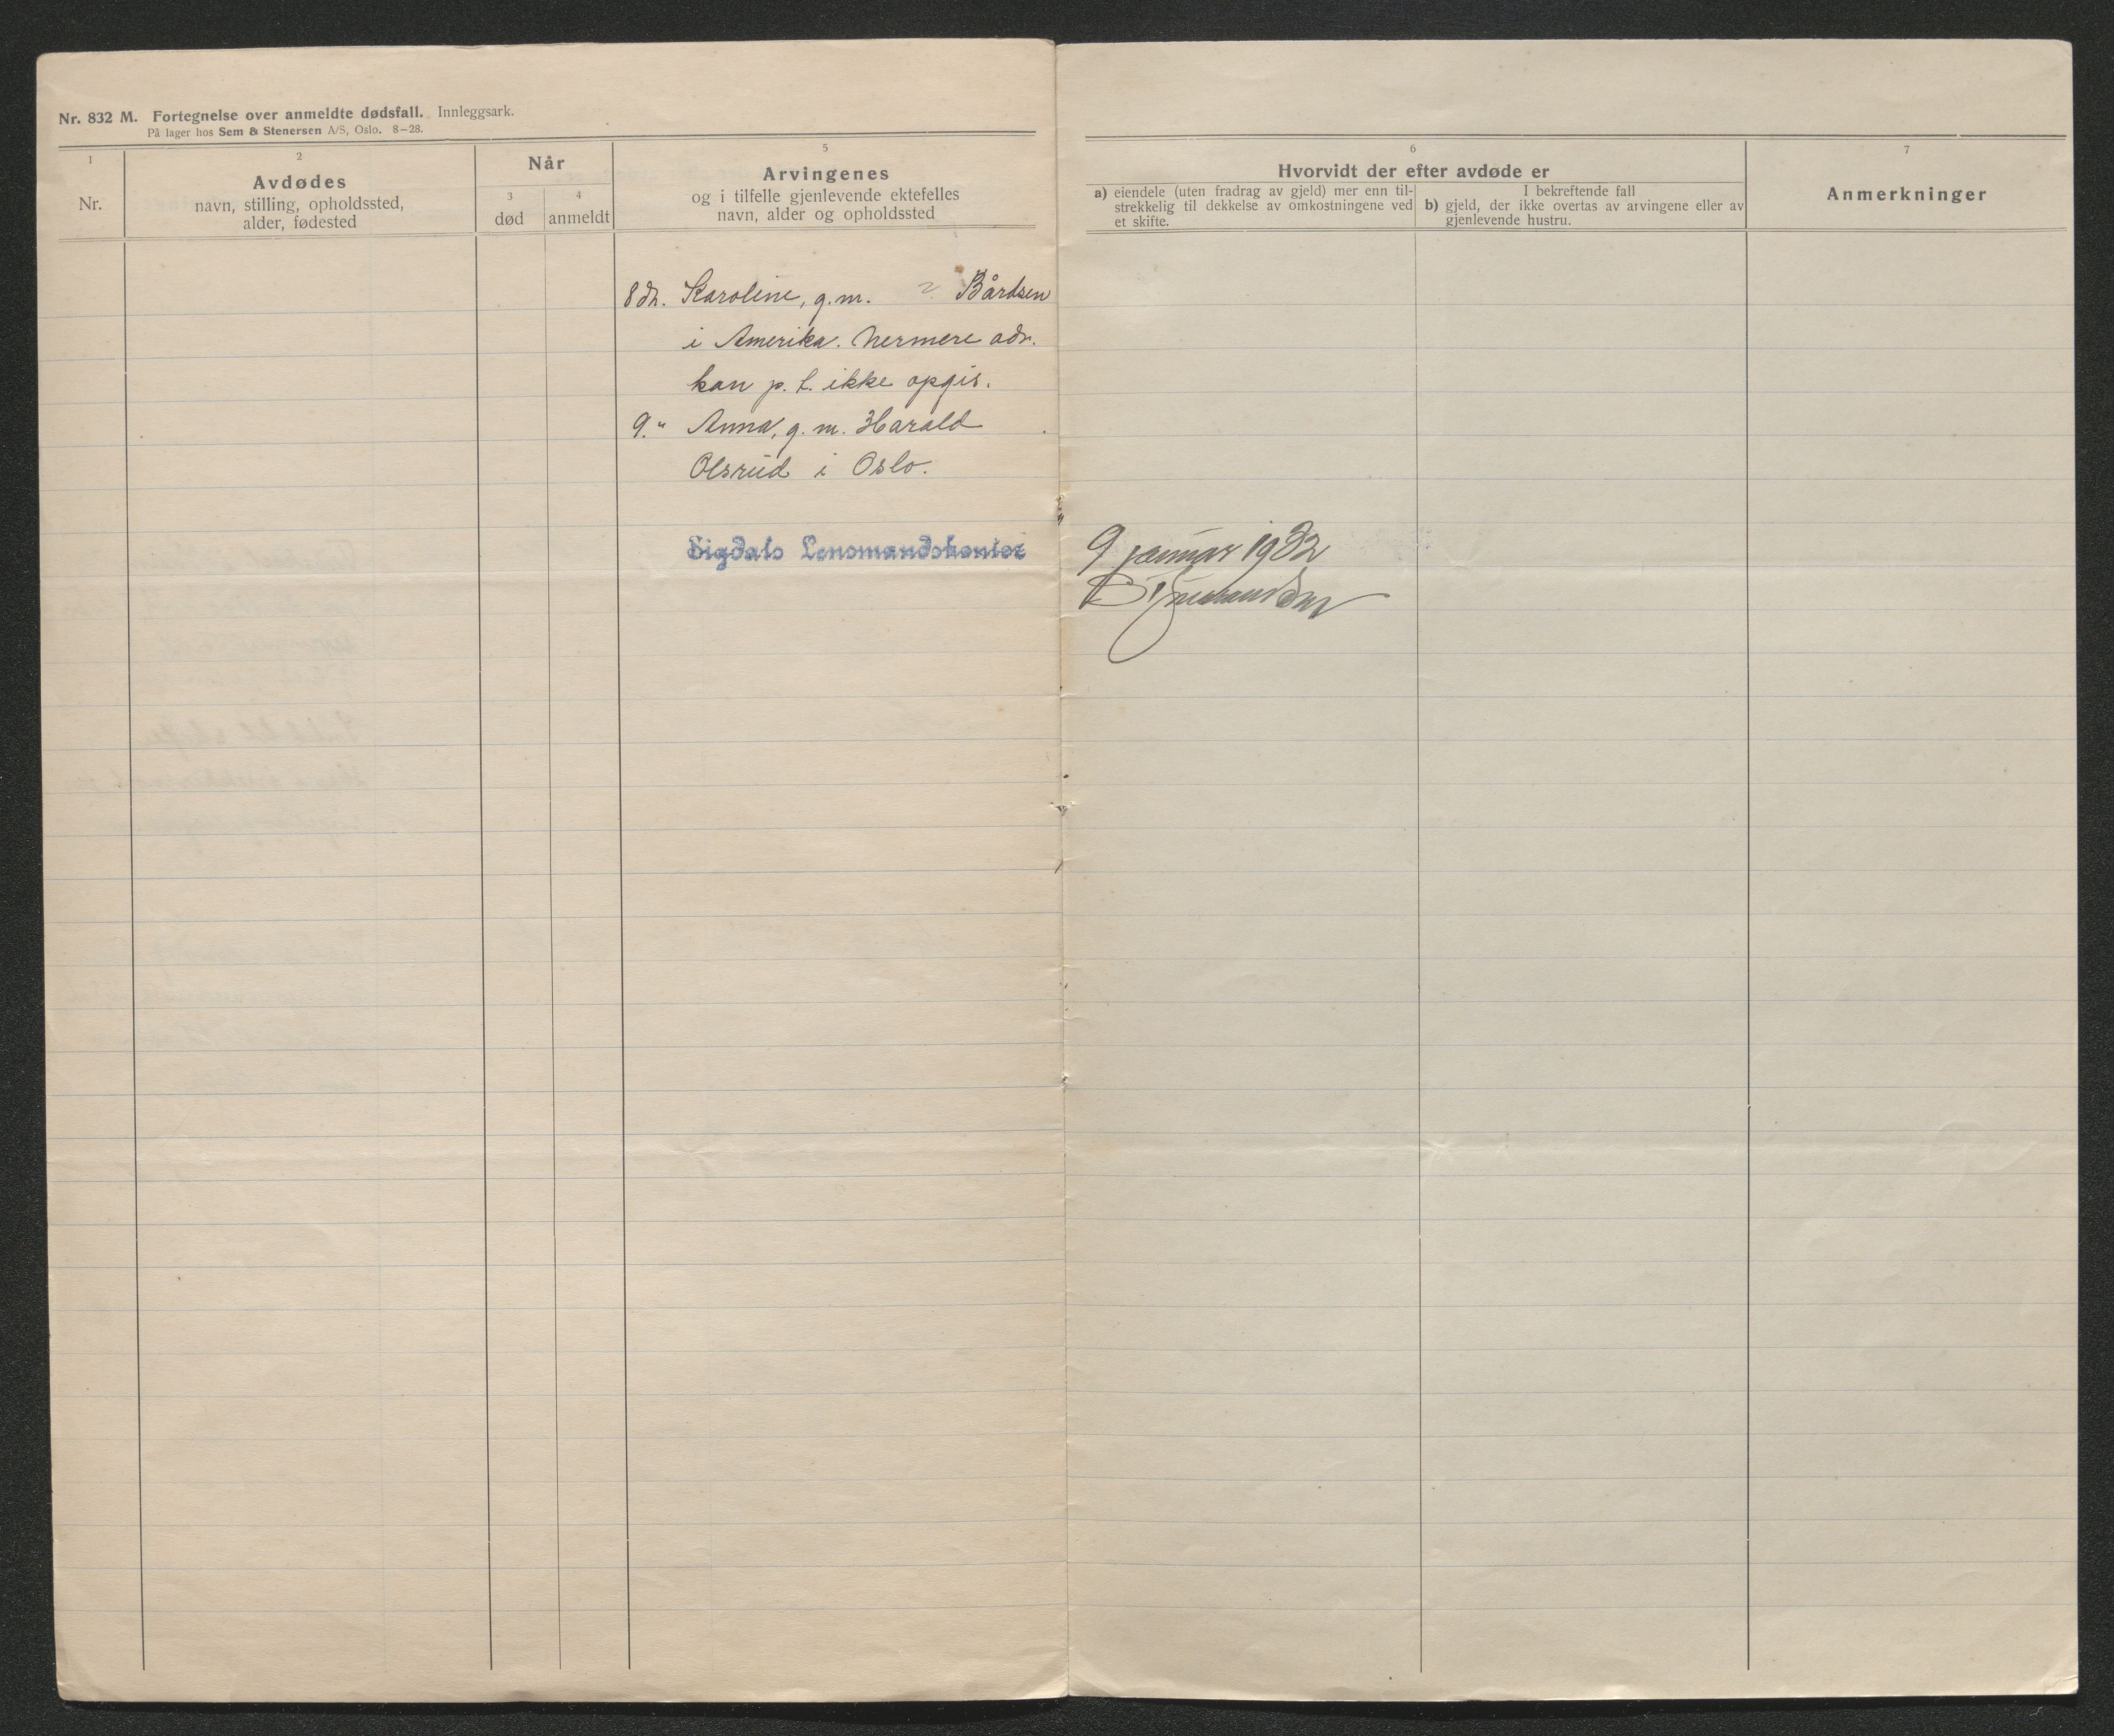 Nr. 832 M. Fortegnelse over anmeldte dødsfall. Innleggsark.
På lager hos Sem & Stenersen A/S, Oslo. 8—28.
1
Nr.
2
Avdødes
navn, stilling, opholdssted,
alder, fødested
Når
3
død
4
anmeldt
5
Arvingenes
og i tilfelle gjenlevende ektefelles
navn, alder og opholdssted
6
Hvorvidt der efter avdøde er
a) eiendele (uten fradrag av gjeld) mer enn til-
strekkelig til dekkelse av omkostningene ved
et skifte.
I bekreftende fall
b) gjeld, der ikke overtas av arvingene eller av
gjenlevende hustru.
7
Anmerkninger
8 dr. Karoline, g.m. Bårdsen
i Amerika. Nermere adr.
kan p. t. ikke opgis.
9. " Anna, g. m. Harald
Olsrud i Oslo.
Sigdals Lensmandskontor
9 januar 1932